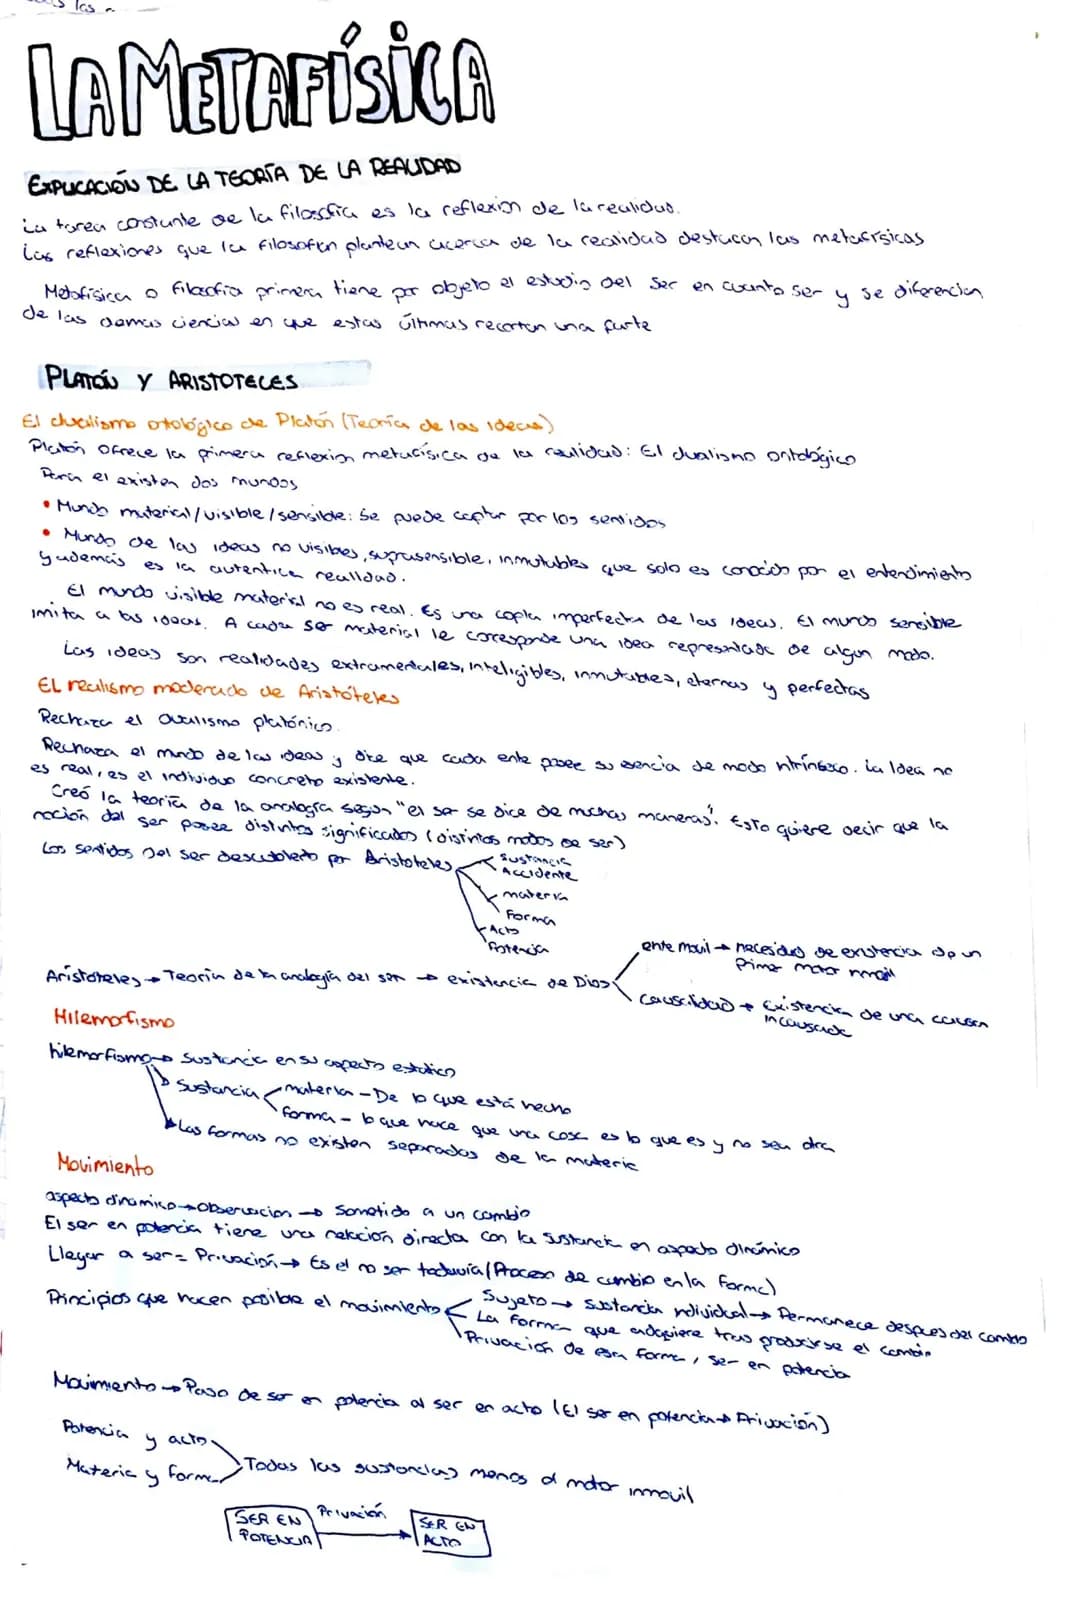 LA METAFÍSICA
EXPLICACIÓN DE LA TEORÍA DE LA REALIDAD
La tarea constante de la filosofía es la reflexión de la realidad.
Las reflexiones que la filosofan plantean acerca de la realidad destacan las metafísicas
Metafísica o filosofía primera tiene por objeto el estudio del ser en cuanto ser y se diferencian
de las demas ciencias en que estas últimas recortan una parte
PLATÓN Y ARISTOTELES
El dualismo otológico de Platón (Teoría de las ideas)
Platón ofrece la primera reflexion metafísica de la realidad: El dualismo ontológico
Para el existen dos mundos
• Mundo material/visible/sensible: Se puede captar por los sentidos
• Mundo de las ideas no visibles, suprasensible, inmutables que solo es conocido por el entendimiento
y además es la autentica realidad.
El mundo visible material no es real. Es una copia imperfecta de las ideas. El mundo sensible
imita a las ideas. A cada ser material le corresponde una idea representada de algun modo.
Las ideas son realidades extramentales, inteligibles, inmutables, eternas y perfectas
EL realismo moderado de Aristóteles
Rechaza el dualismo platónico.
Rechaza el mundo de las ideas y dice que cada ente posee su esencia de modo intrínseco. La Idea no
es real, es el individuo concreto existente.
Creó la teoría de la analogía según "el ser se dice de muchas maneras". Esto quiere decir que la
noción del ser posee distintos significados (distintos modos de ser)
Los sentidos del ser descubierto por Aristoteles
Sustancia
Accidente
materia
Forma
Acto
Potencia
Aristóteles → Teoría de la analogía del ser → existencia de Dios
ente movil → necesidad de existencia de un
Primer motor inmovil
Causalidad → Existencia de una causa
incausada
Hilemorfismo
hilemorfismo → Sustancia en su aspecto estatico
Sustancia
materia - De lo que está hecho
forma - lo que hace que una cosa es lo que es y no sea otra
Las formas no existen separadas de la materia
Movimiento
aspecto dinamico → observacion → sometido a un cambio
El ser en potencia tiene una relación directa con la sustancia en aspecto dinámico
Llegar a ser = Privación → Es el no ser todavía (Proceso de cambio en la forma)
Principios que hacen posible el movimiento
Sujeto → sustancia individual → Permanece despues del cambio
La forma que adquiere tras producirse el cambio
Privación de esa forma, ser en potencia
Movimiento → Paso de ser en potencia al ser en acto (El ser en potencia → Privación)
Potencia y acto
Materia y forma
Todas las sustancias menos el motor inmovil
SER EN
POTENCIA
Privación
SER EN
ACTO